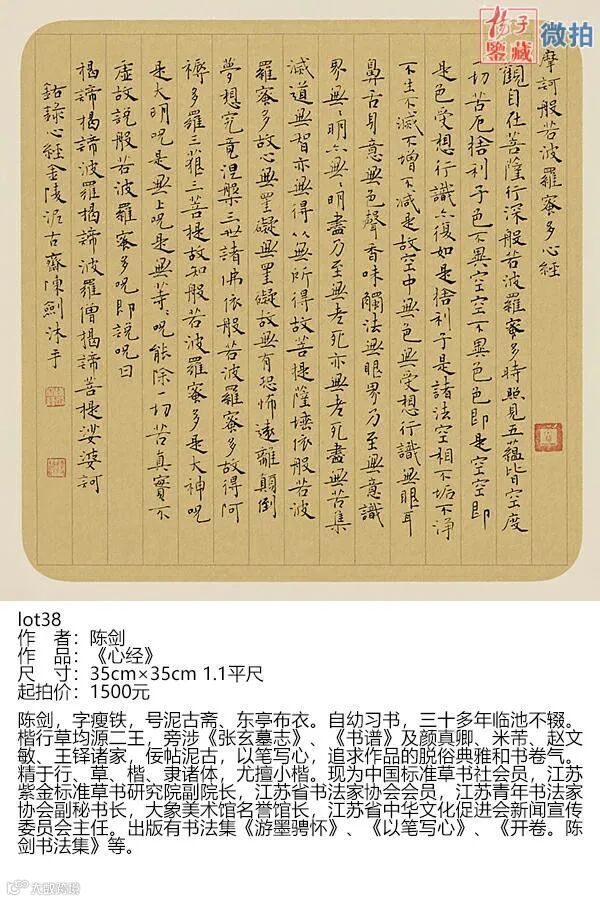 揚子
鑒藏
微拍
摩訶般若波羅蜜多心經
觀自在菩薩行深般若波羅蜜多時照見五蘊皆空度
一切苦厄捨利子色不異空空不異色色即是空空即
是色受想行識亦復如是捨利子是諸法空相不垢不淨
不生不滅不增不減是故空中無色無受想行識無眼耳
鼻舌身意無色聲香味觸法無眼界乃至無意識
界無無明亦無無明盡乃至無老死亦無老死盡無苦集
滅道無智亦無得以無所得故菩提薩埵依般若波
羅蜜多故心無罣礙無罣礙故無有恐怖遠離顛倒
夢想究竟涅槃三世諸佛依般若波羅蜜多故得阿
耨多羅三藐三菩提故知般若波羅蜜多是大神咒
是大明咒是無上咒是無等〻咒能除一切苦真實不
虛故說般若波羅蜜多咒即說咒曰
揭諦揭諦波羅揭諦波羅僧揭諦菩提娑婆訶
錄心經金陵泥古齋陳劍沐手
lot38
作 者：陈剑
作 品：《心经》
尺 寸：35cm×35cm 1.1平尺
起拍价：1500元
陈剑，字瘦铁，号泥古斋、东亭布衣。自幼习书，三十多年临池不辍。
楷行草均源二王，旁涉《张玄墓志》、《书谱》及颜真卿、米芾、赵文
敏、王铎诸家，佞帖泥古，以笔写心，追求作品的脱俗典雅和书卷气。
精于行、草、楷、隶诸体，尤擅小楷。现为中国标准草书社会员，江苏
紫金标准草书研究院副院长，江苏省书法家协会会员，江苏青年书法家
协会副秘书长，大象美术馆名誉馆长，江苏省中华文化促进会新闻宣传
委员会主任。出版有书法集《游墨骋怀》、《以笔写心》、《开卷。陈
剑书法集》等。